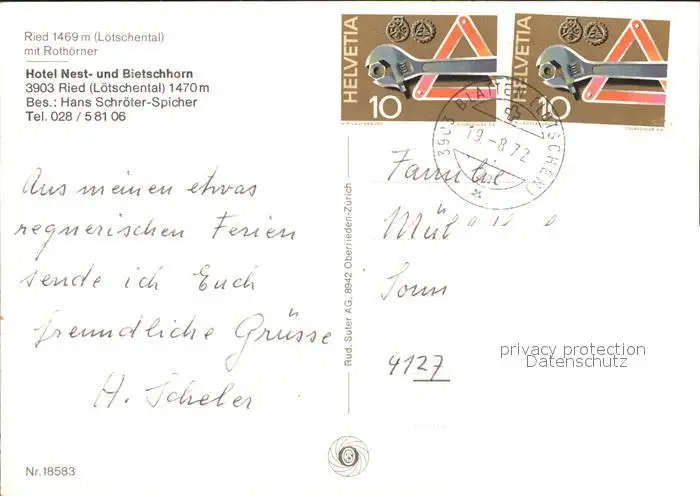 Ried 1469 m (Lötschental)
mit Rothörner
Hotel Nest- und Bietschhorn
3903 Ried (Lötschental) 1470 m
Bes.: Hans Schröter-Spicher
Tel. 028 / 5 81 06
Aus meinen etwas
regnerischen Ferien
sende ich Euch
freundliche Grüsse
H. Scheler
Nr. 18583
Rud. Suter AG, 8942 Oberrieden-Zürich
HELVETIA
10
HELVETIA
10
3903 BLATTEN (LÖTSCHEN)
19.-8.72
Familie
Mül
Sonn
4127
privacy protection
Datenschutz